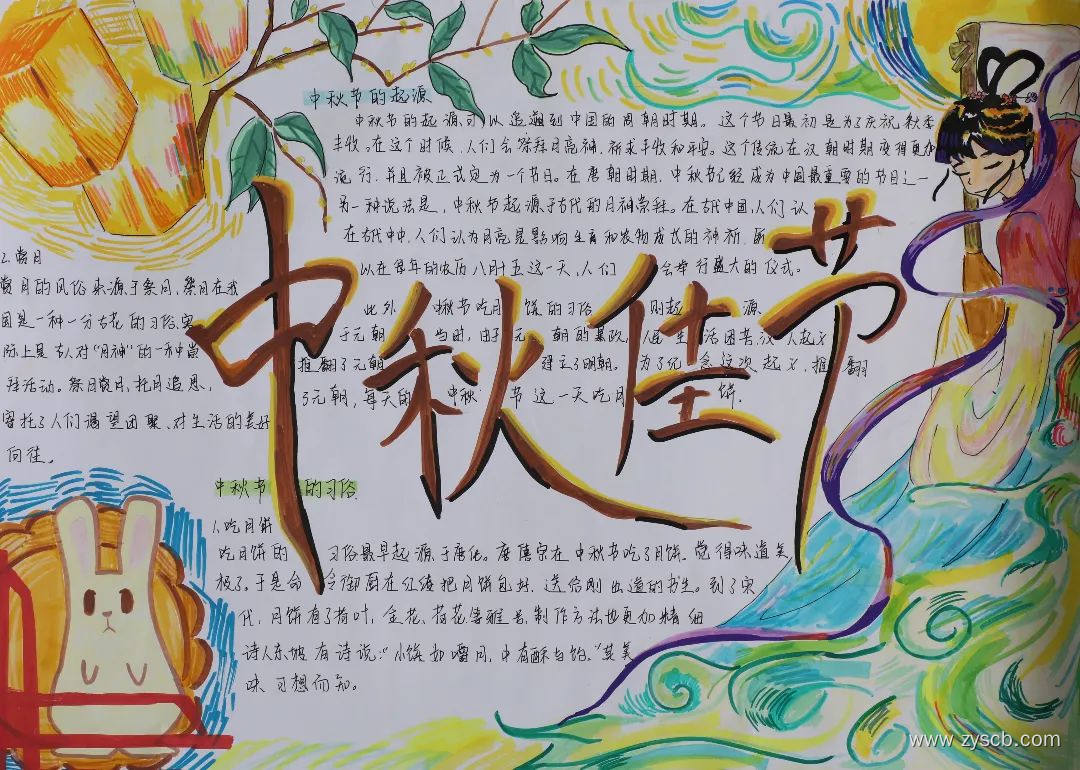 中秋佳节
中秋节的起源
中秋节的起源可以追溯到中国的周朝时期。这个节日最初是为了庆祝秋季
丰收。在这个时候,人们会祭拜月亮神,祈求丰收和平安。这个传统在汉朝时期变得更加
流行,并且被正式定为一个节日。在唐朝时期,中秋节已经成为中国最重要的节日之一
另一种说法是,中秋节起源于古代的月神崇拜。在古代中国,人们认
在古代中中,人们认为月亮是影响生育和农物成长的神祈,所
以在每年的农历八月十五这一天,人们会举行盛大的仪式。
此外 中秋节吃月饼的习俗则起源
于元朝 当时,由于元朝的暴政,人民生活困苦,汉人起义
推翻了元朝 建立了明朝。为了纪念这次起义,推翻
了元朝,每天的中秋节这一天吃月饼.
2.赏月
赏月的风俗来源于祭月,祭月在我
国是一种十分古老的习俗,实
际上是古人对“月神”的一种崇
拜活动。祭月赏月,托月追思,
寄托了人们渴望团聚、对生活的美好
向往。
中秋节的习俗
1.吃月饼
吃月饼的习俗最早起源于唐代。唐僖宗在中秋节吃了月饼,觉得味道美
极了。于是命令御厨在红绫把月饼包好,送给刚出道的书生。到了宋
代,月饼有了荷叶,金花、荷花等雅号,制作方法也更加精细
诗人东坡有诗说:“小饼如嚼月,中有酥与饴。”其美
味可想而知。
www.zyscb.com